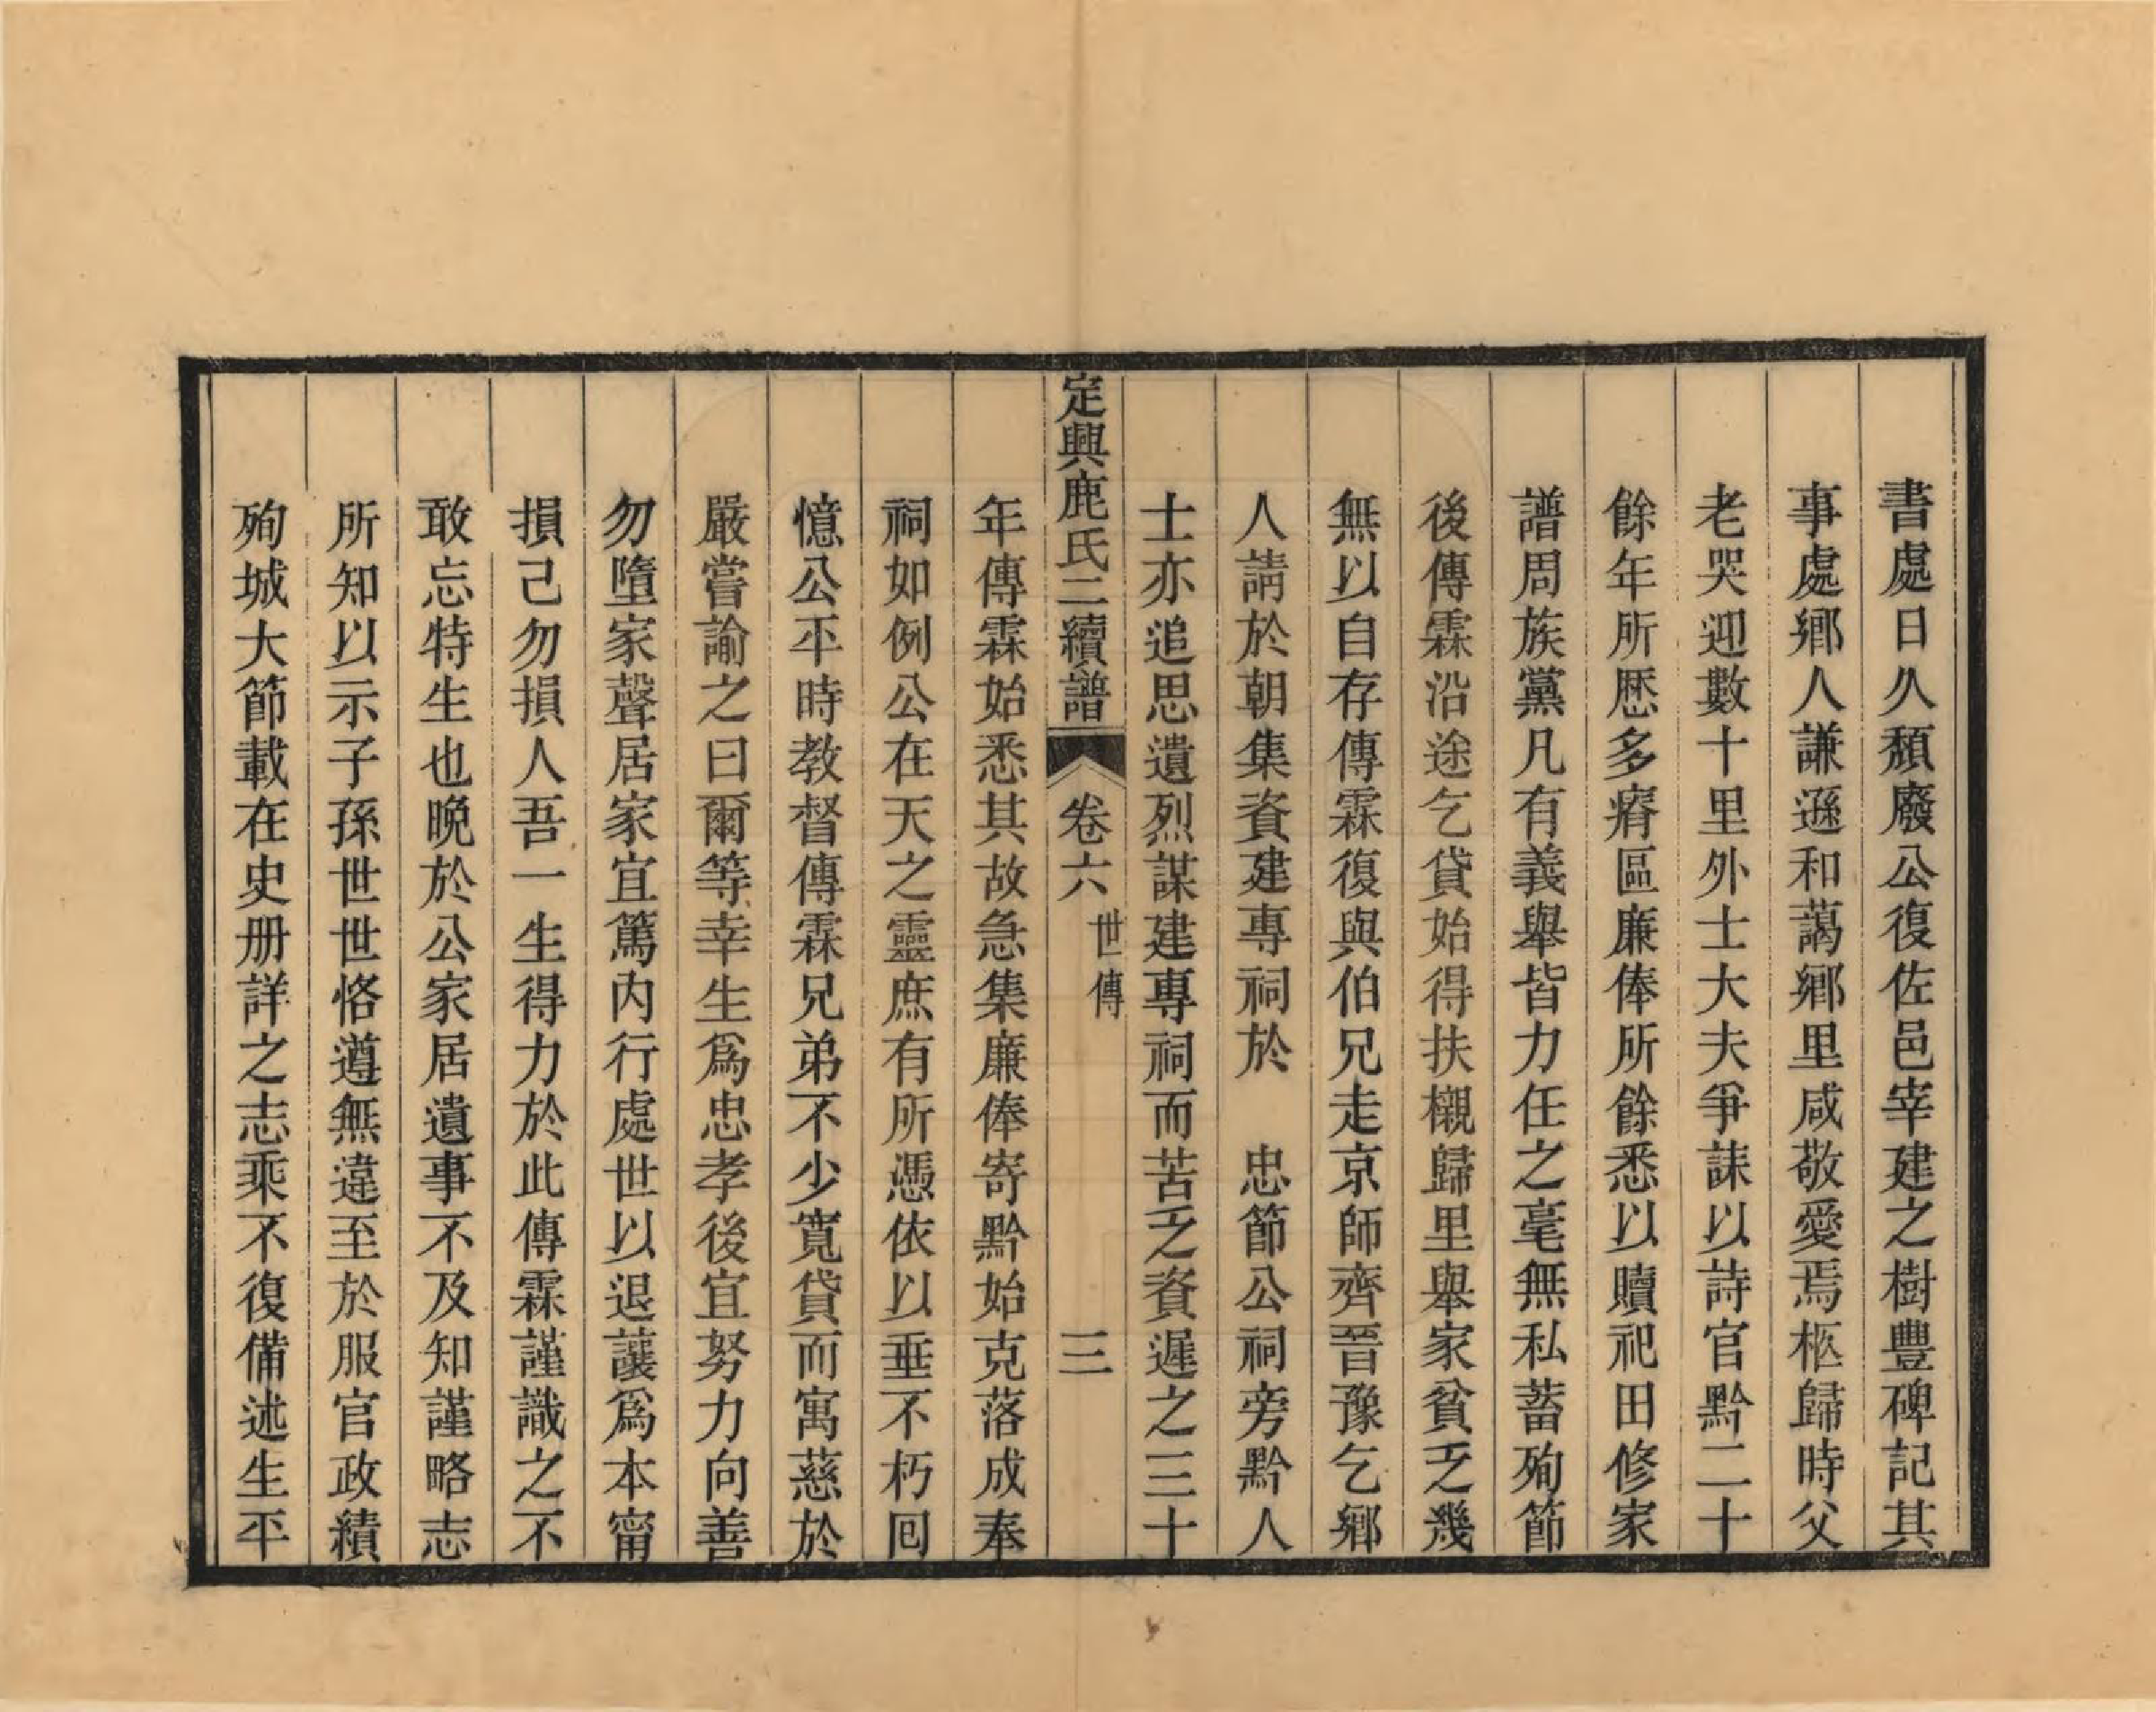 書處日久頹廢公復佐邑宰建之樹豐碑記其
事處鄉人謙遜和藹鄉里咸敬愛焉柩歸時父
老哭迎數十里外士大夫爭誄以詩官黔二十
餘年所歷多瘠區廉俸所餘悉以贖祀田修家
譜周族黨凡有義舉皆力任之毫無私蓄殉節
後傳霖沿途乞貸始得扶櫬歸里舉家貧乏幾
無以自存傳霖復與伯兄走京師齊晉豫乞鄉
人請於朝集資建專祠於　忠節公祠旁黔人
士亦追思遺烈謀建專祠而苦乏資遲之三十
定興鹿氏二續譜　卷六　世傳　三
年傳霖始悉其故急集廉俸寄黔始克落成奉
祠如例公在天之靈庶有所憑依以垂不朽囘
憶公平時教督傳霖兄弟不少寬貸而寓慈於
嚴嘗諭之曰爾等幸生爲忠孝後宜努力向善
勿墮家聲居家宜篤內行處世以退讓爲本甯
損己勿損人吾一生得力於此傳霖謹識之不
敢忘特生也晚於公家居遺事不及知謹略志
所知以示子孫世世恪遵無違至於服官政績
殉城大節載在史册詳之志乘不復備述生平